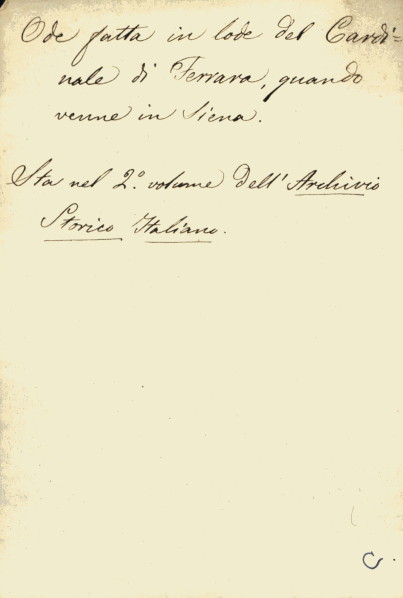 Ode fatta in lode del Cardi=
nale di Ferrara, quando
venne in Siena.
Sta nel 2.º volume dell' Archivio
Storico Italiano.
C.